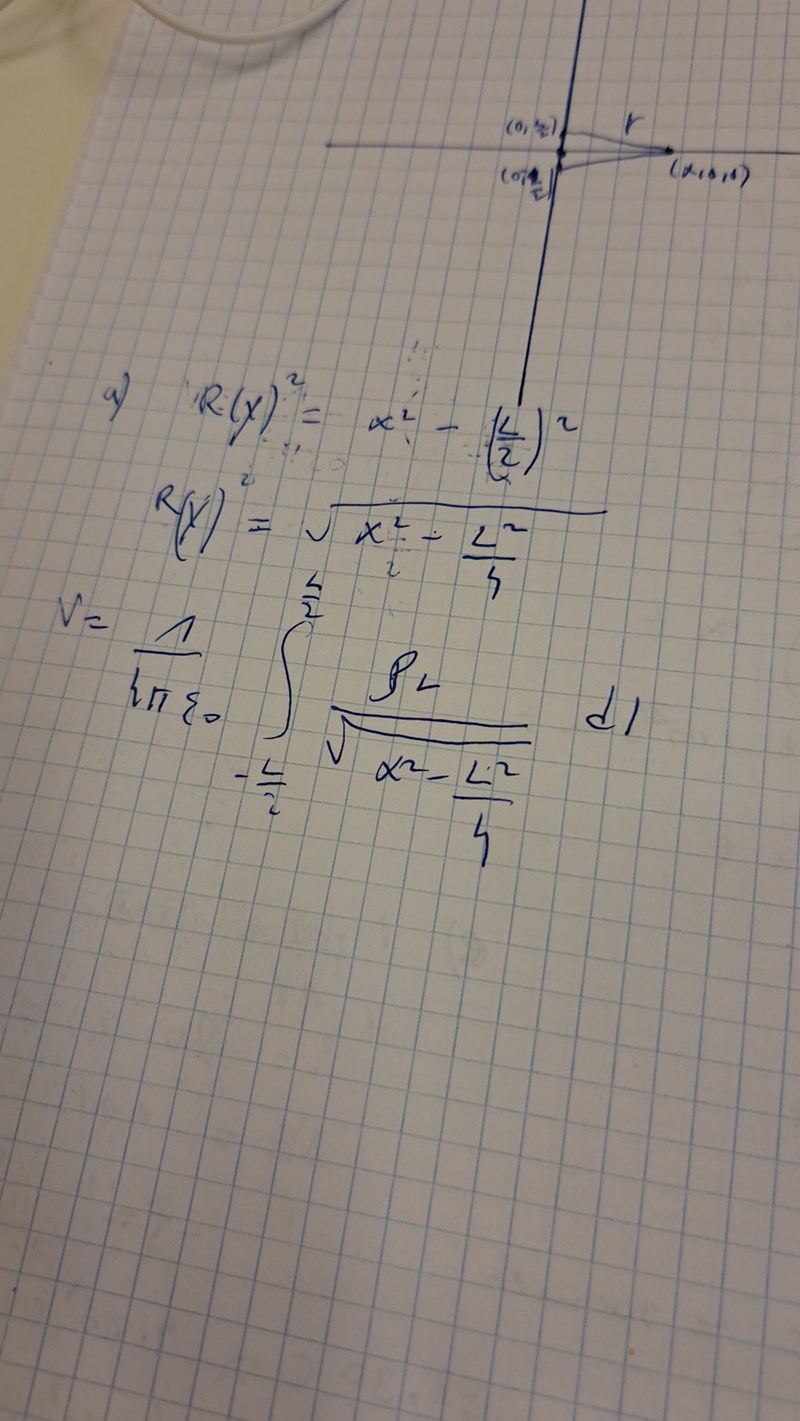 (0, L/2) r
(0, -L/2) (x,0,0)
a) R(x)² = x² - (L/2)²
R(x)² = √(x² - L²/4)
V = 1/(4πε₀) ∫_{-L/2}^{L/2} ρ_L/√(x² - L²/4) dl